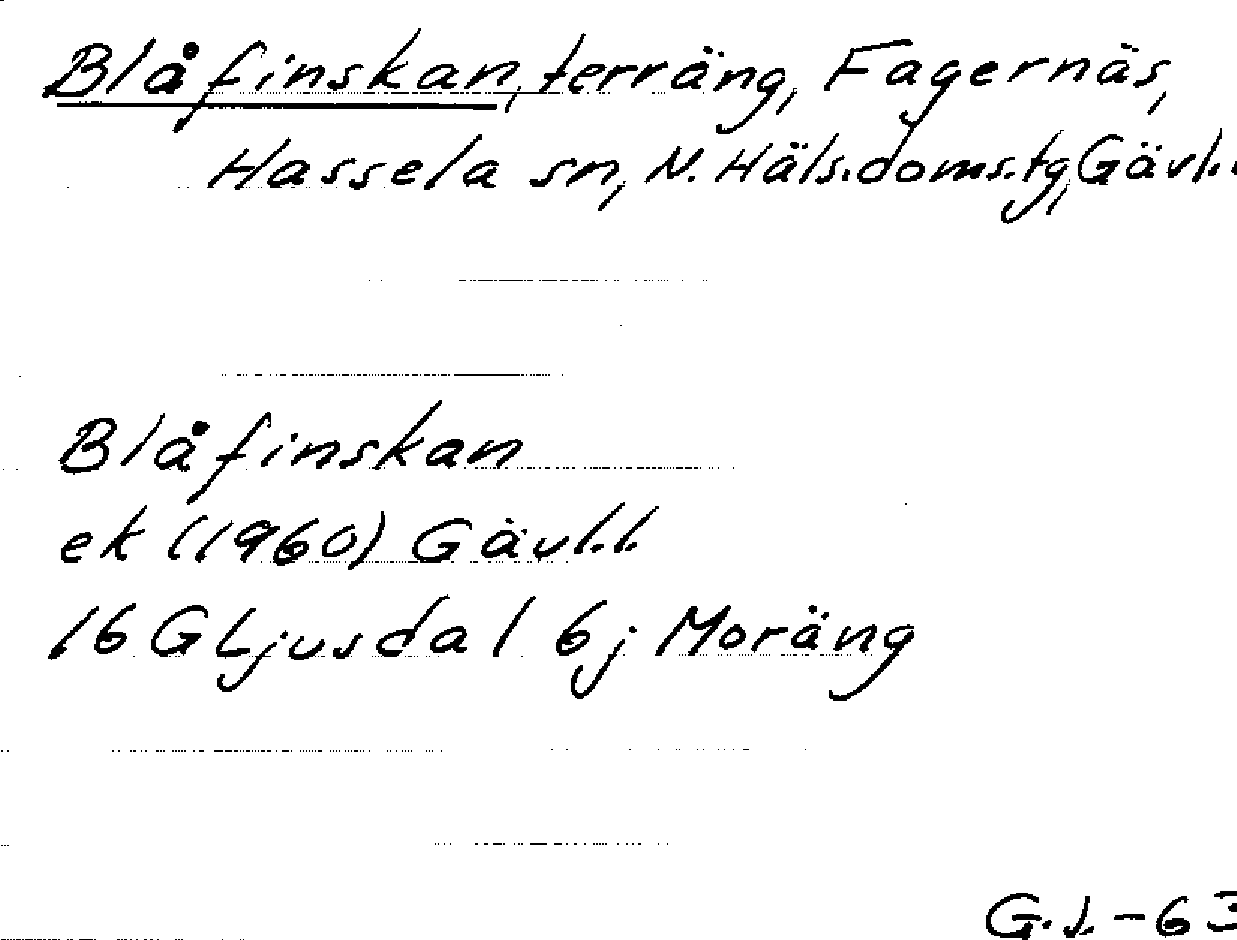 Blåfinskan, terräng, Fagernäs,
Hassela sn, N. Häls.doms.tg, Gävl.l
Blåfinskan
ek (1960) Gävl.l.
16 G Ljusdal 6j Moräng
G.J.-63